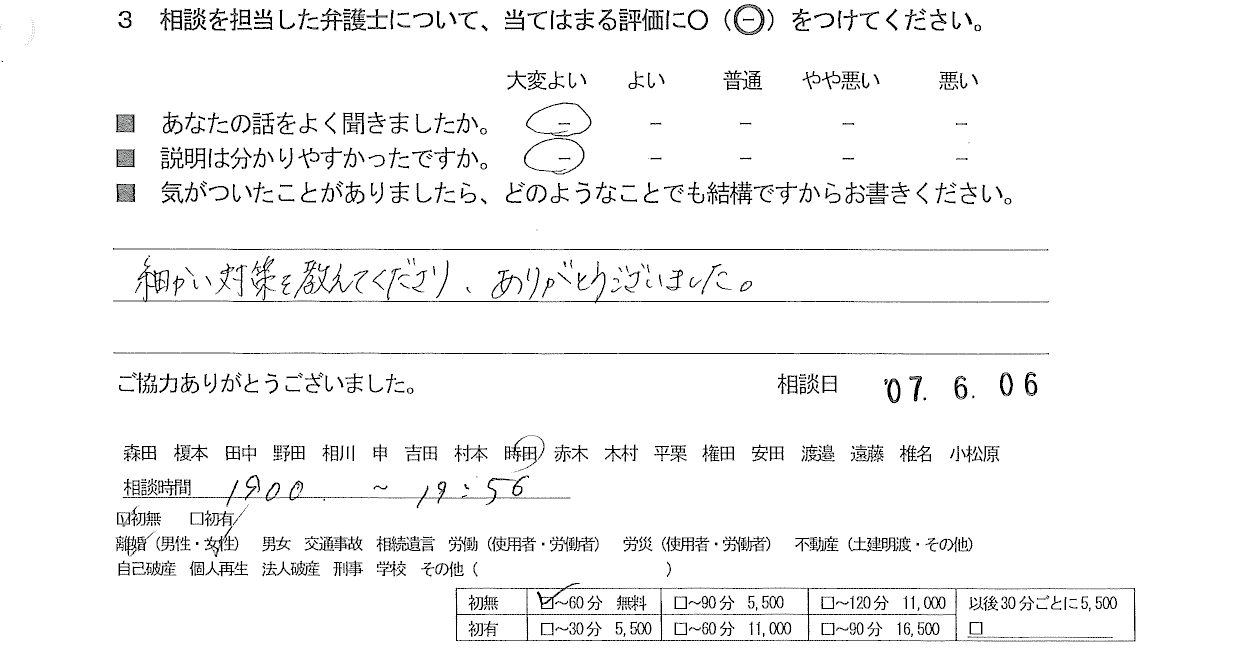 3 相談を担当した弁護士について、当てはまる評価に〇（㊀）をつけてください。
大変よい よい 普通 やや悪い 悪い
■ あなたの話をよく聞きましたか。 － － － － －
■ 説明は分かりやすかったですか。 － － － － －
■ 気がついたことがありましたら、どのようなことでも結構ですからお書きください。
細かい対策を教えてくださり、ありがとうございました。
ご協力ありがとうございました。 相談日 '07. 6. 06
森田 榎本 田中 野田 相川 申 吉田 村本 時田 赤木 木村 平栗 権田 安田 渡邉 遠藤 椎名 小松原
相談時間 1900 ～ 19:56
☑初無 □初有
離婚（男性・女性） 男女 交通事故 相続遺言 労働（使用者・労働者） 労災（使用者・労働者） 不動産（土建明渡・その他）
自己破産 個人再生 法人破産 刑事 学校 その他（ ）
初無 ☑～60分 無料 □～90分 5,500 □～120分 11,000 以後30分ごとに5,500
初有 □～30分 5,500 □～60分 11,000 □～90分 16,500 □